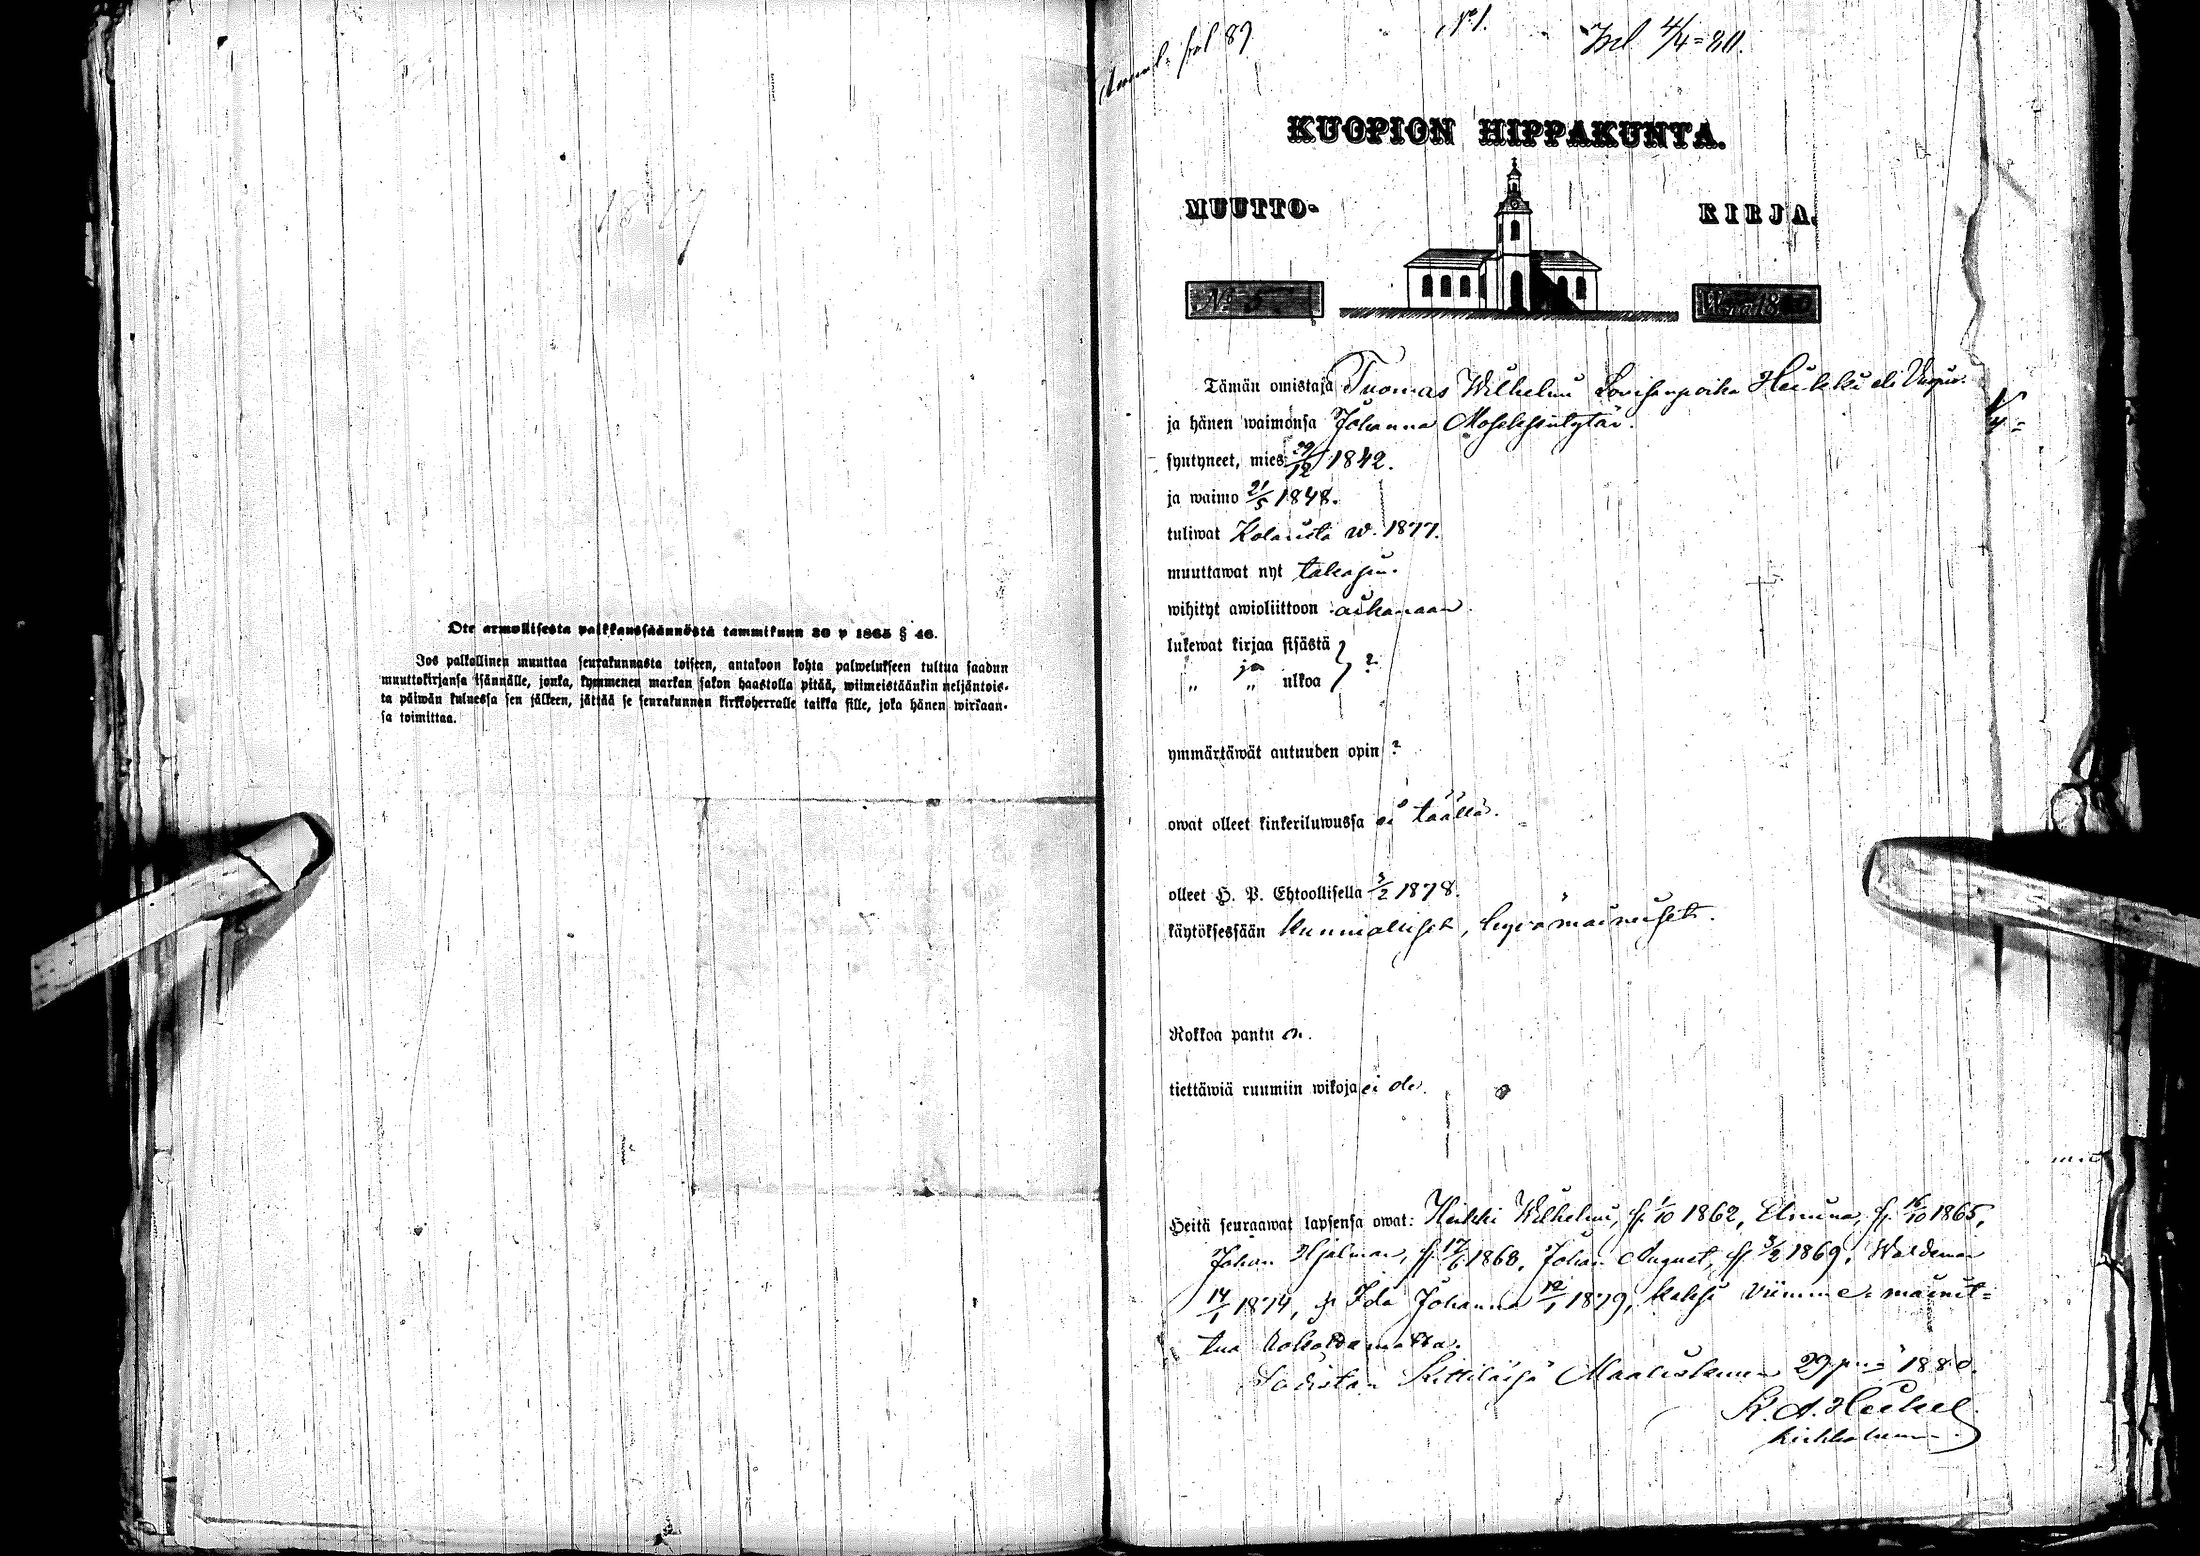 Ote armollisesta palkkaussäännöstä tammikuun 30 p 1865 § 46.
Jos palkollinen muuttaa seurakunnasta toiseen, antakoon kohta palwelukseen tultua saadun
muuttokirjansa isännälle, jonka, kymmenen markan sakon haastolla pitää, wiimeistäänkin neljäntois-
ta päiwän kuluessa sen jälkeen, jättää se seurakunnan kirkkoherralle taikka sille, joka hänen wirkaan-
sa toimittaa.
fol 89
N:o 1.
Inl 4/4 = 80.
KUOPION HIPPAKUNTA.
MUUTTO- KIRJA.
N:o 5
Wuonna 1880
Tämän omistaja Tuomas Wilhelmi Lovisanpoika Heikki eli
ja hänen waimonsa Johanna Moseksentytär.
syntyneet, mies 29/12 1842.
ja waimo 21/5 1848.
tuliwat Kolarista w. 1877.
muuttawat nyt takasin.
wihityt awioliittoon aikanaan.
lukewat kirjaa sisästä
„ ja „ ulkoa } ?
ymmärtäwät autuuden opin ?
owat olleet kinkeriluwussa ei täällä.
olleet H. P. Ehtoollisella 3/2 1878.
käytöksessään kunnialliset, hywämaineiset.
Rokkoa pantu on.
tiettäwiä ruumiin wikoja ei ole.
Heitä seuraawat lapsensa owat: Heikki Wilhelmi, s. 1/10 1862, Elmina, s. 16/10 1865,
Johan Hjalmar, s. 17/6 1868, Johan August, s. 3/2 1869, Waldemar
14/1 1874, ja Ida Johanna 12/1 1879, kaksi viimme mainit=
tua rokottamatta.
Todistan Kittilässä Maaliskuun 29 p:nä 1880.
K. A. Heikel
kirkkoherra